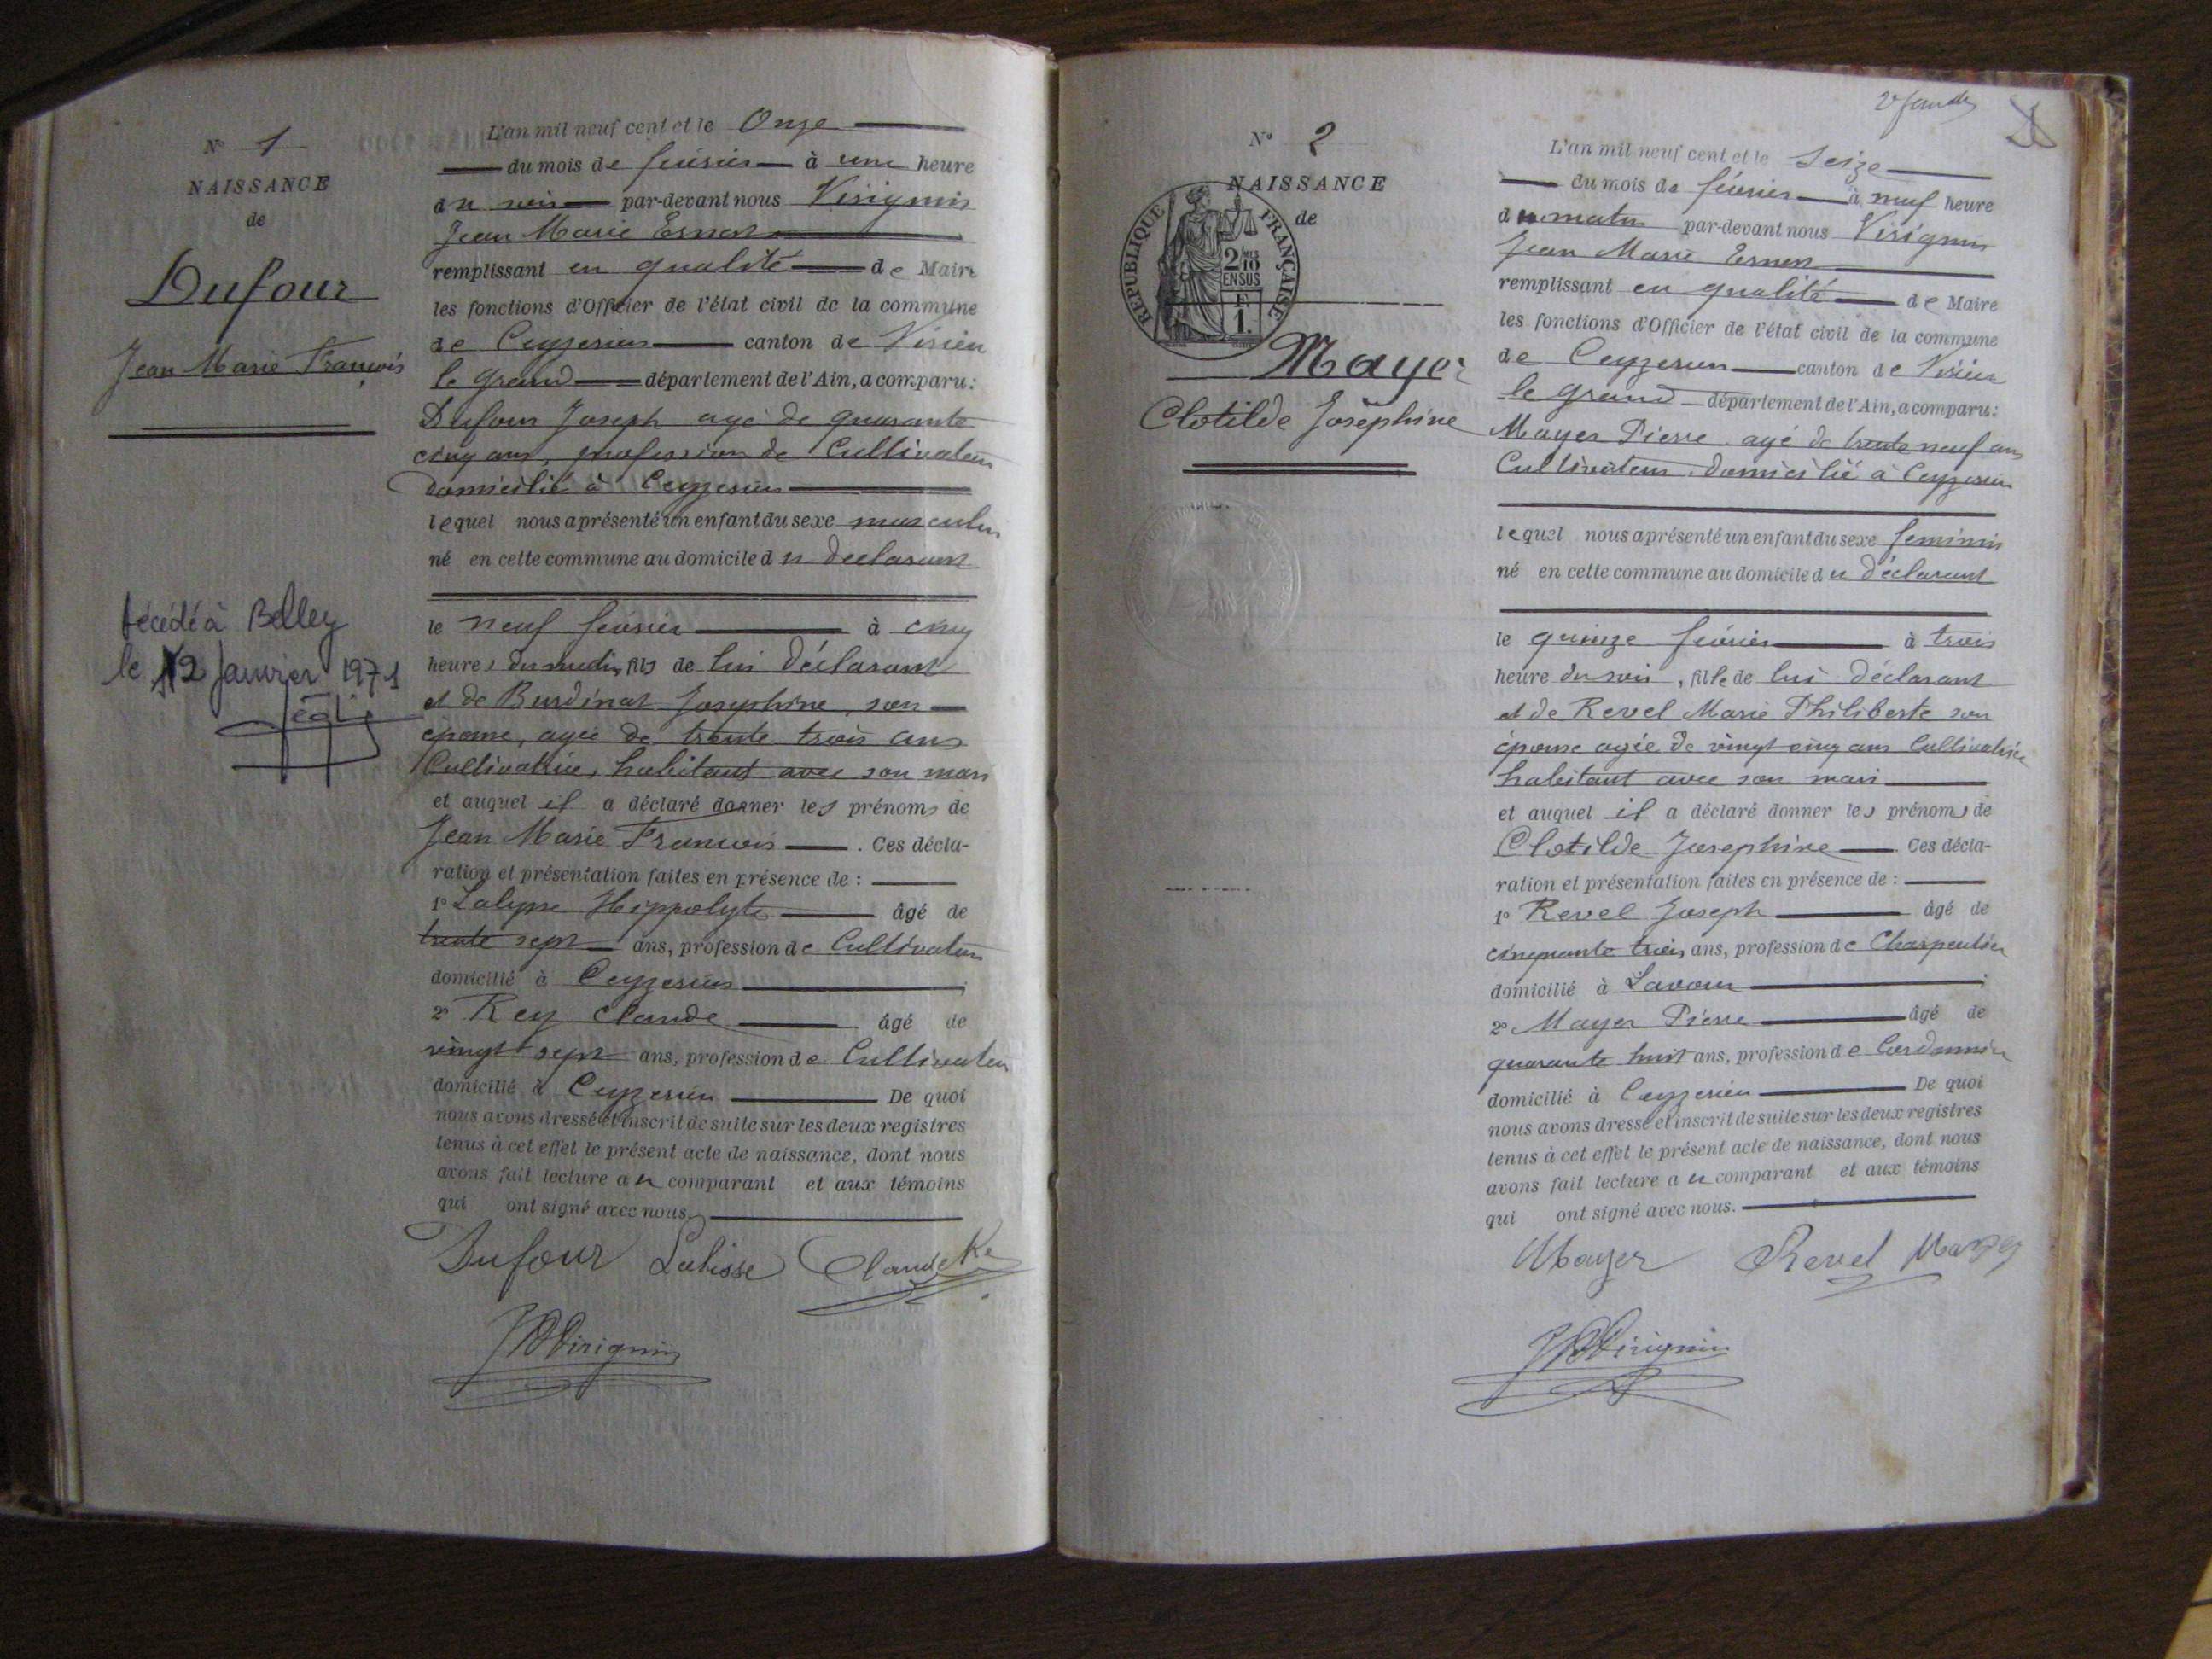 N° 1
NAISSANCE
de
Dufour
Jean Marie François
décédé à Belley
le 12 Janvier 1971
L'an mil neuf cent et le Onze
du mois de février à une heure
du soir par-devant nous Virignin
Jean Marie Ernest
remplissant en qualité de Maire
les fonctions d'Officier de l'état civil de la commune
de Ceyzerieu canton de Virieu
le grand département de l'Ain, a comparu:
Dufour Joseph agé de quarante
cinq ans, profession de Cultivateur
domicilié à Ceyzerieu
lequel nous a présenté un enfant du sexe masculin
né en cette commune au domicile du déclarant
le neuf février à cinq
heures du matin, fils de lui déclarant
et de Burdinat Josephine, son
épouse, agée de trente trois ans
Cultivatrice, habitant avec son mari
et auquel il a déclaré donner les prénoms de
Jean Marie François. Ces décla-
ration et présentation faites en présence de :
1° Lalysse Hippolyte âgé de
trente sept ans, profession de Cultivateur
domicilié à Ceyzerieu
2° Rey Claude âgé de
vingt sept ans, profession de Cultivateur
domicilié à Ceyzerieu De quoi
nous avons dressé et inscrit de suite sur les deux registres
tenus à cet effet le présent acte de naissance, dont nous
avons fait lecture au comparant et aux témoins
qui ont signé avec nous.
Dufour Lalisse Claude Re
JMVirignin
N° 2
NAISSANCE
de
REPUBLIQUE FRANÇAISE
2/10 MES
EN SUS
F.
1.
Mayer
Clotilde Joséphine
L'an mil neuf cent et le Seize
du mois de février à neuf heure
du matin par-devant nous Virignin
Jean Marie Ernest
remplissant en qualité de Maire
les fonctions d'Officier de l'état civil de la commune
de Ceyzerieu canton de Virieu
le grand département de l'Ain, a comparu:
Mayer Pierre agé de trente neuf ans
Cultivateur, domicilié à Ceyzerieu
lequel nous a présenté un enfant du sexe feminin
né en cette commune au domicile du déclarant
le quinze février à trois
heure du soir, fille de lui déclarant
et de Revel Marie Philiberte son
épouse agée de vingt cinq ans Cultivatrice
habitant avec son mari
et auquel il a déclaré donner les prénoms de
Clotilde Josephine. Ces décla-
ration et présentation faites en présence de :
1° Revel Joseph âgé de
cinquante trois ans, profession de Charpentier
domicilié à Lavour
2° Mayer Pierre âgé de
quarante huit ans, profession de Cordonnier
domicilié à Ceyzerieu De quoi
nous avons dressé et inscrit de suite sur les deux registres
tenus à cet effet le présent acte de naissance, dont nous
avons fait lecture au comparant et aux témoins
qui ont signé avec nous.
Mayer Revel Mayer
JMVirignin